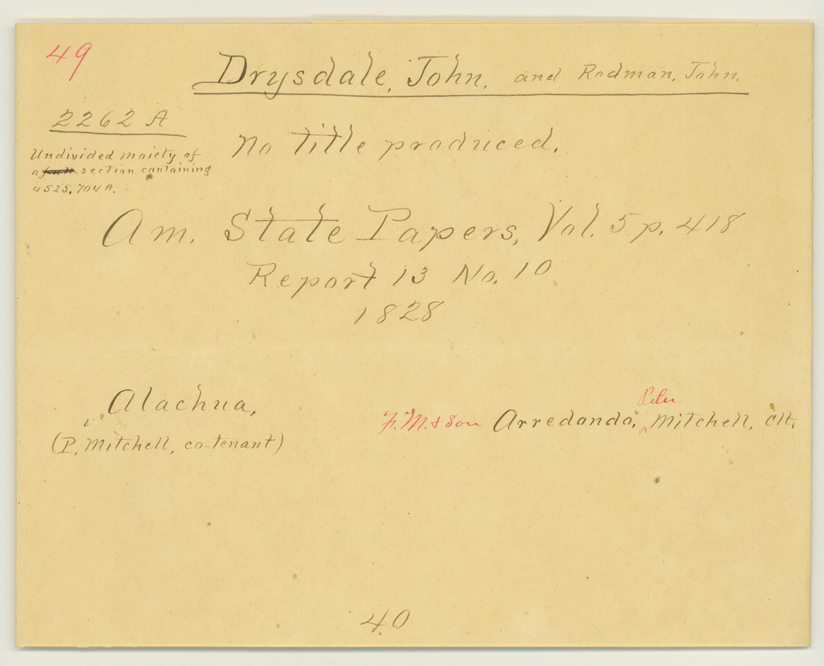 49
Drysdale, John, and Rodman, John.
2262 A
No title produced.
Undivided moiety of
a section containing
4525.704 A.
Am. State Papers, Vol. 5 p. 418
Report 13 No. 10
1828
Alachua,
(P. Mitchell, co-tenant)
F. M. & Son Arredondo, Peter Mitchell, Clt.
40